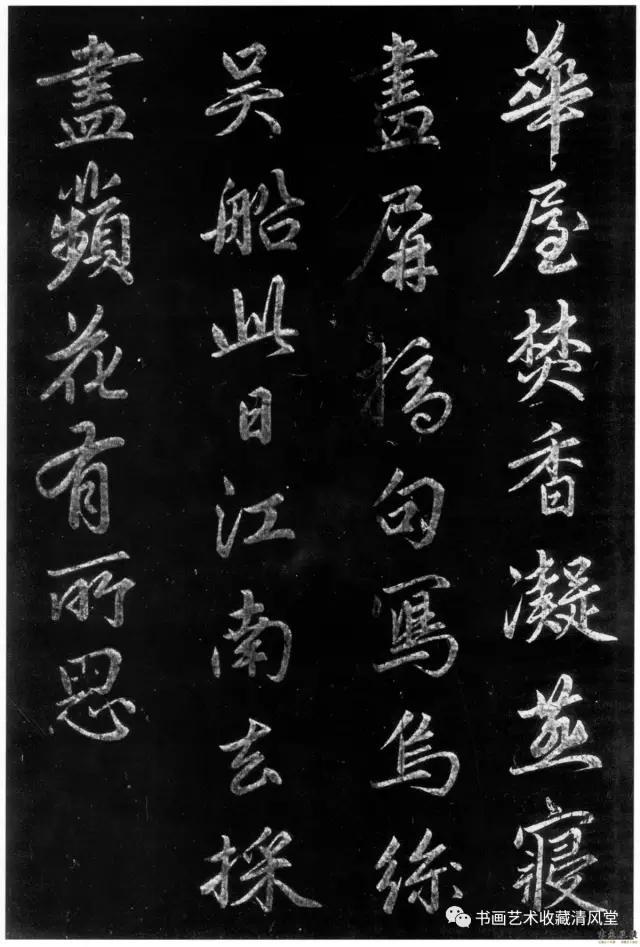 華屋焚香凝燕寢
畫屏摛句寫烏絲
吴船此日江南去採
盡蘋花有所思
书画艺术收藏清风堂